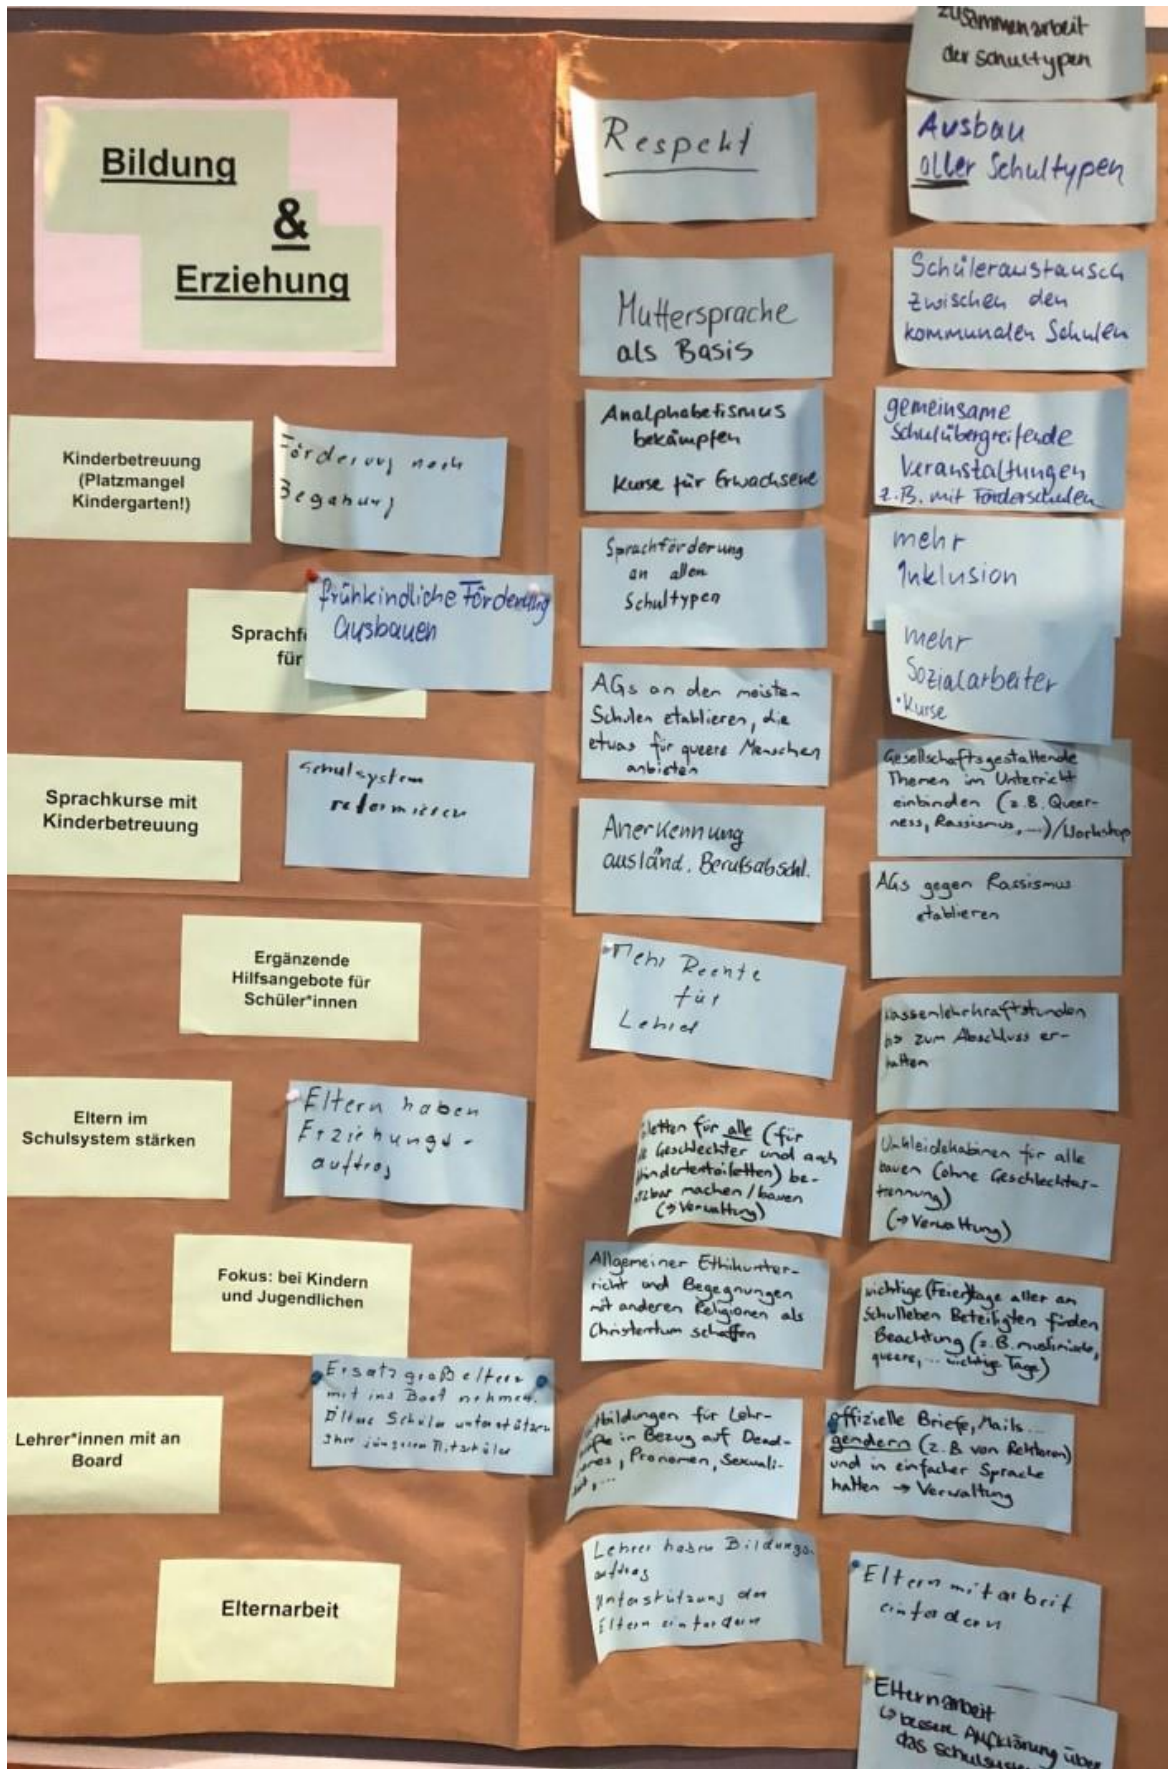 Bildung
&
Erziehung
Kinderbetreuung
(Platzmangel
Kindergarten!)
Förderung nach
Begabung
Sprachf
für
frühkindliche Förderung
ausbauen
Sprachkurse mit
Kinderbetreuung
Schulsystem
reformieren
Ergänzende
Hilfsangebote für
Schüler*innen
Eltern im
Schulsystem stärken
Eltern haben
Erziehungs-
auftrag
Fokus: bei Kindern
und Jugendlichen
Ersatzgroßeltern
mit ins Boot nehmen.
Ältere Schüler unterstützen
ihre jüngeren Mitschüler
Lehrer*innen mit an
Board
Elternarbeit
Respekt
Muttersprache
als Basis
Analphabetismus
bekämpfen
Kurse für Erwachsene
Sprachförderung
an allen
Schultypen
AGs an den meisten
Schulen etablieren, die
etwas für queere Menschen
anbieten
Anerkennung
ausländ. Berufsabschl.
Mehr Rechte
für
Lehrer
letten für alle (für
e Geschlechter und auch
hindertentoiletten) be-
tzbar machen/bauen
(→ Verwaltung)
Allgemeiner Ethikunter-
richt und Begegnungen
mit anderen Religionen als
Christentum schaffen
tbildungen für Lehr-
äfte in Bezug auf Dead-
mes, Pronomen, Sexuali-
tät, ...
Lehrer haben Bildungs-
auftrag
Unterstützung der
Eltern einfordern
Zusammenarbeit
der Schultypen
Ausbau
aller Schultypen
Schüleraustausch
zwischen den
kommunalen Schulen
gemeinsame
Schulübergreifende
Veranstaltungen
z.B. mit Förderschulen
mehr
Inklusion
mehr
Sozialarbeiter
• Kurse
Gesellschaftsgestaltende
Themen im Unterricht
einbinden (z.B. Queer-
ness, Rassismus, ...)/Workshop
AGs gegen Rassismus
etablieren
lassenlehrkraftstunden
bis zum Abschluss er-
halten
Umkleidekabinen für alle
bauen (ohne Geschlechter-
trennung)
(→ Verwaltung)
wichtige (Feier)tage aller am
Schulleben Beteiligten finden
Beachtung (z.B. muslimische,
queere, ... wichtige Tage)
offizielle Briefe, Mails...
gendern (z.B von Rektoren)
und in einfacher Sprache
halten → Verwaltung
Elternmitarbeit
einfordern
Elternarbeit
↳ bessere Aufklärung über
das Schulsystem